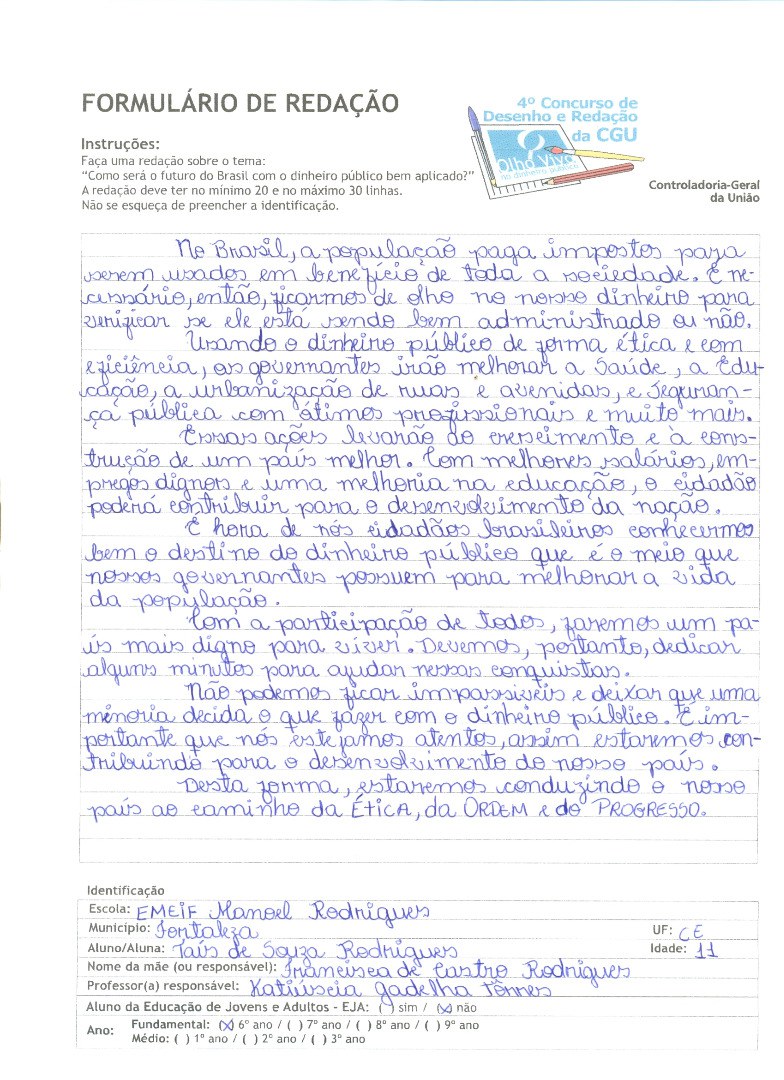 FORMULÁRIO DE REDAÇÃO
4º Concurso de
Desenho e Redação
da CGU
Olho Vivo
no dinheiro público
Controladoria-Geral
da União
Instruções:
Faça uma redação sobre o tema:
“Como será o futuro do Brasil com o dinheiro público bem aplicado?”
A redação deve ter no mínimo 20 e no máximo 30 linhas.
Não se esqueça de preencher a identificação.
No Brasil, a população paga impostos para
serem usados em benefício de toda a sociedade. É ne-
cessário, então, ficarmos de olho no nosso dinheiro para
verificar se ele está sendo bem administrado ou não.
Usando o dinheiro público de forma ética e com
eficiência, os governantes irão melhorar a Saúde, a Edu-
cação, a urbanização de ruas e avenidas, e Seguran-
ça pública com ótimos profissionais e muito mais.
Essas ações levarão ao crescimento e à cons-
trução de um país melhor. Com melhores salários, em-
pregos dignos e uma melhoria na educação, o cidadão
poderá contribuir para o desenvolvimento da nação.
É hora de nós cidadãos brasileiros conhecermos
bem o destino do dinheiro público que é o meio que
nossos governantes possuem para melhorar a vida
da população.
Com a participação de todos, faremos um pa-
ís mais digno para viver. Devemos, portanto, dedicar
alguns minutos para ajudar nessas conquistas.
Não podemos ficar impassíveis e deixar que uma
minoria decida o que fazer com o dinheiro público. É im-
portante que nós estejamos atentos, assim estaremos con-
tribuindo para o desenvolvimento do nosso país.
Desta forma, estaremos conduzindo o nosso
país ao caminho da ÉTICA, da ORDEM e do PROGRESSO.
Identificação
Escola: EMEIF Manoel Rodrigues
Município: Fortaleza UF: CE
Aluno/Aluna: Taís de Souza Rodrigues Idade: 11
Nome da mãe (ou responsável): Francisca de Castro Rodrigues
Professor(a) responsável: Katiúscia Gadelha Tôrres
Aluno da Educação de Jovens e Adultos - EJA: ( ) sim / (X) não
Ano: Fundamental: (X) 6º ano / ( ) 7º ano / ( ) 8º ano / ( ) 9º ano
Médio: ( ) 1º ano / ( ) 2º ano / ( ) 3º ano